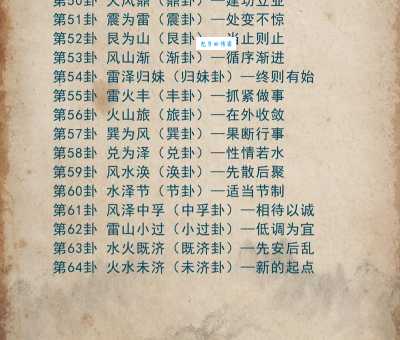 第50卦 火风鼎（鼎卦）—建功立业
第51卦 震为雷（震卦）—处变不惊
第52卦 艮为山（艮卦 当止则止
第53卦 风山渐（渐卦）—循序渐进
第54卦 雷泽归妹（归妹卦）—终则有始
第55卦 雷火丰（丰卦）—抓紧做事
第56卦 火山旅（旅卦）—在外收敛
第57卦 巽为风（巽卦）—果断行事
第58卦 兑为泽（兑卦）—性情若水
第59卦 风水涣（涣卦）—先散后聚
第60卦 水泽节（节卦）—适当节制
第61卦 风泽中孚（中孚卦）—相待以诚
第62卦 雷山小过（小过卦）—低调为宜
第63卦 水火既济（既济卦）—先安后乱
第64卦 火水未济（未济卦）—新的起点